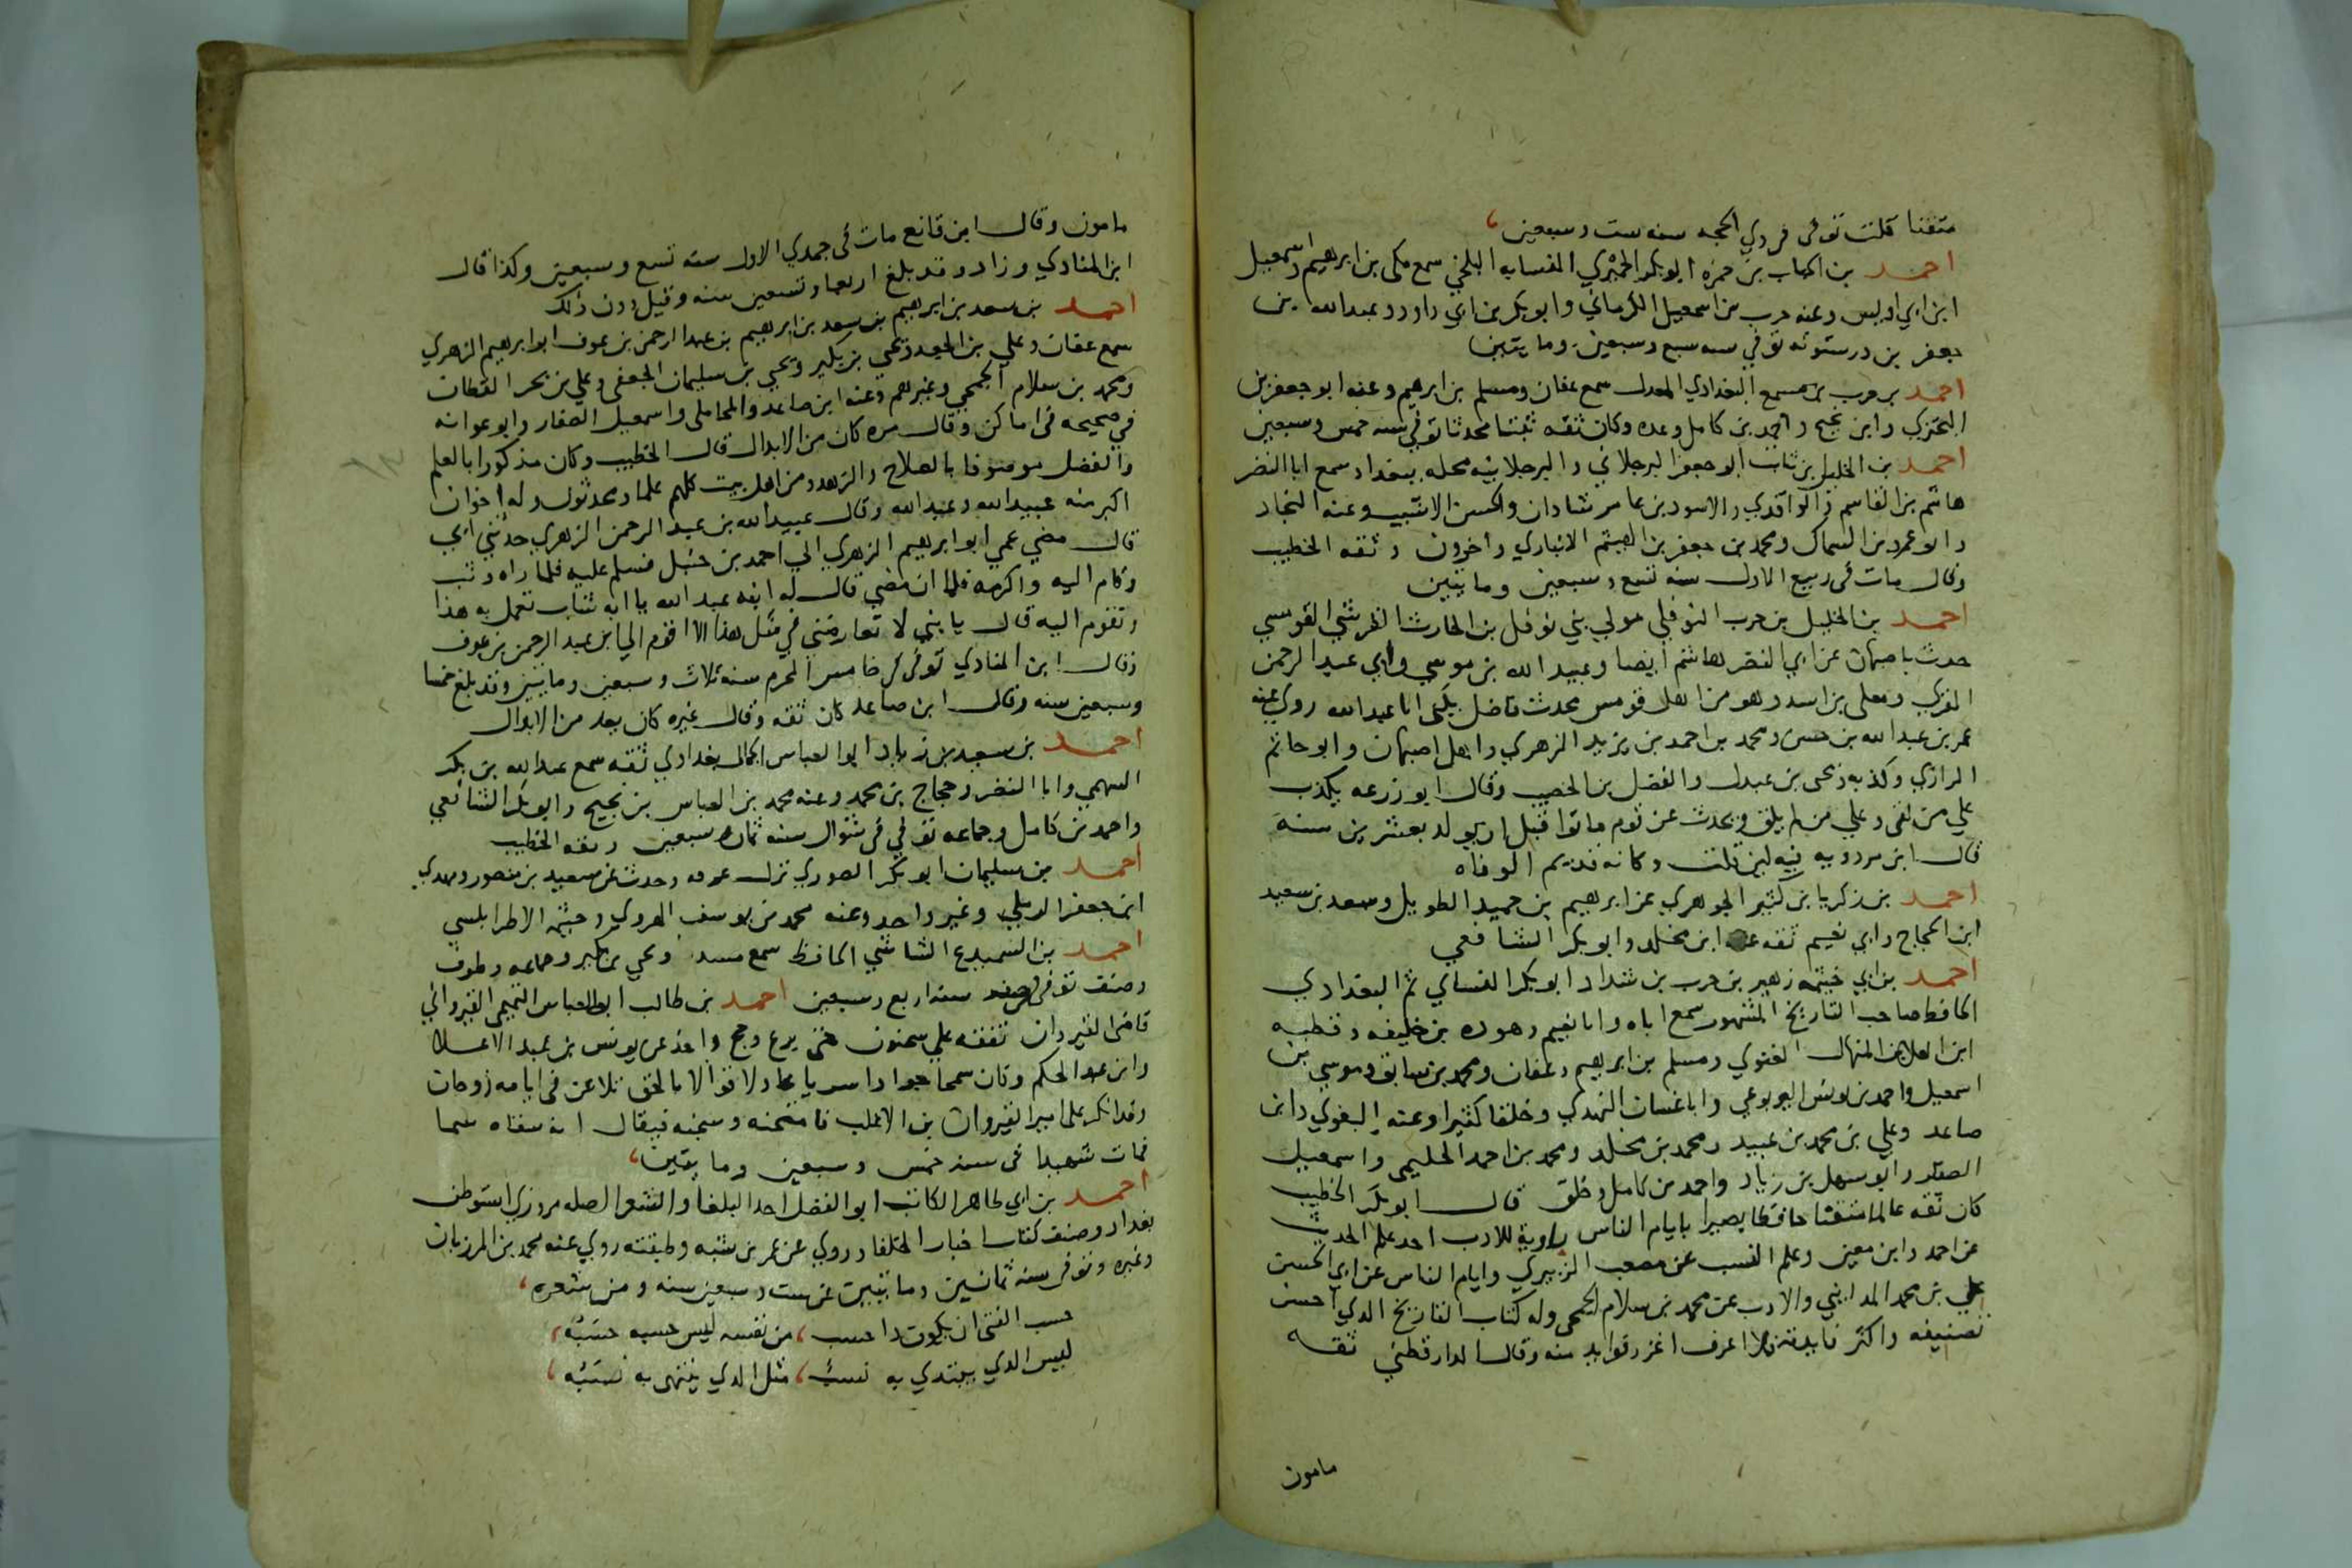 متقنا قلت توفي في ذي الحجه سنه ست وسبعين
احمد بن الحباب بن حمزه ابو بكر الحميري النسابه البلخي سمع مكي بن ابرهيم واسمعيل
ابن ابي اويس وعنه حرب بن اسمعيل الكرماني وابو بكر بن ابي داود وعبد الله بن
جعفر بن درستويه توفي سنه سبع وسبعين وما يتين
احمد بن حرب بن مسمع البغدادي المعدل سمع عفان ومسلم بن ابرهيم وعنه ابو جعفر بن
البختري وابن نجيح واحمد بن كامل وعده وكان ثقه ثبتا محدثا توفي سنه خمس وسبعين
احمد بن الخليل بن ثابت ابو جعفر البرجلاني والبرجلانيه محله ببغداد سمع ابا النضر
هاشم بن القاسم والواقدي والاسود بن عامر شادان والحسن الاشيب وعنه النجاد
وابو عمرو بن السماك ومحمد بن جعفر بن الهيثم الانباري واخرون وثقه الخطيب
وقال مات في ربيع الاول سنه تسع وسبعين وما يتين
احمد بن الخليل بن حرب النوفلي مولي بني نوفل بن الحارث القرشي القومسي
حدث باصبهان عن ابي النضر هاشم ايضا وعبيد الله بن موسي وابي عبد الرحمن
المقري ومعلي بن اسد وهو من اهل قومس محدث فاضل يكنى ابا عبد الله روي عنه
عمر بن عبد الله بن حسن ومحمد بن احمد بن يزيد الزهري واهل اصبهان وابو حاتم
الرازي وكذبه ويحيى بن عبدك والفضل بن الخصيب وقال ابو زرعه يكذب
علي من لقى وعلي من لم يلق ويحدث عن قوم ماتوا قبل ان يولد بعشرين سنه
قال ابن مردويه فيه لين قلت وكانه قديم الوفاه
احمد بن زكريا بن كثير الجوهري عن ابرهيم بن حميد الطويل وسعد بن سعيد
ابن الحجاج وابي نعيم ثقه عنه ابن مخلد وابو بكر الشافعي
احمد بن ابي خيثمه زهير بن حرب بن شداد ابو بكر النساي ثم البغدادي
الحافظ صاحب التاريخ المشهور سمع اباه وابا نعيم وهوذه بن خليفه وقطبه
ابن العلا بن المنهال الغنوي ومسلم بن ابرهيم وعفان ومحمد بن سابق وموسي بن
اسمعيل واحمد بن يونس اليربوعي وابا غسان النهدي وخلقا كثيرا وعنه البغوي وابن
صاعد وعلي بن محمد بن عبيد ومحمد بن مخلد ومحمد بن احمد الحليمي واسمعيل
الصفار وابو سهل بن زياد واحمد بن كامل وخلق قال ابو بكر الخطيب
كان ثقه عالما متقنا حافظا بصيرا بايام الناس راوية للادب اخذ علم الحديث
عن احمد وابن معين وعلم النسب عن مصعب الزبيري وايام الناس عن ابي الحسن
علي بن محمد المدايني والادب عن محمد بن سلام الجمحي وله كتاب التاريخ الذي احسن
تصنيفه واكثر فايدته فلا اعرف اغزر فوايد منه وقال الدارقطني ثقه
مامون
مامون وقال ابن قانع مات في جمدي الاول سنه تسع وسبعين وكذا قال
ابن المنادي وزاد وقد بلغ اربعا وتسعين سنه وقيل دون ذلك
احمد بن سعد بن ابرهيم بن سعد بن ابرهيم بن عبد الرحمن بن عوف ابو ابرهيم الزهري
سمع عفان وعلي بن الجعد ويحيي بن بكير ويحيي بن سليمان الجعفي وعلي بن بحر القطان
ومحمد بن سلام الجمحي وغيرهم وعنه ابن صاعد والمحاملي واسمعيل الصفار وابو عوانه
في صحيحه في اماكن وقال مره كان من الابدال قال الخطيب وكان مذكورا بالعلم
والفضل موصوفا بالصلاح والزهد ومن اهل بيت كلهم علما ومحدثون وله اخوان
اكبر منه عبيد الله وعبد الله وقال عبيد الله بن عبد الرحمن الزهري حدثني ابي
قال مضي عمي ابو ابرهيم الزهري الي احمد بن حنبل فسلم عليه فلما راه وثب
وقام اليه واكرمه فلما ان مضي قال له ابنه عبد الله يا ابه شاب تعمل به هذا
وتقوم اليه قال يا بني لا تعارضني في مثل هذا الا اقوم الي ابن عبد الرحمن بن عوف
وقال ابن المنادي توفي في خامس المحرم سنه ثلاث وسبعين وما يتين وقد بلغ خمسا
وسبعين سنه وقال ابن صاعد كان ثقه وقال غيره كان يعد من الابدال
احمد بن سعيد بن زياد ابو العباس الجمال بغدادي ثقه سمع عبد الله بن بكر
السهمي وابا النضر وحجاج بن محمد وعنه محمد بن العباس بن نجيح وابو بكر الشافعي
واحمد بن كامل وجماعه توفي في شوال سنه ثمان وسبعين وثقه الخطيب
احمد بن سليمان ابو بكر الصوري نزل عرقه وحدث عن سعيد بن منصور ومهدي
ابن جعفر الرملي وغير واحد وعنه محمد بن يوسف الهروي وخيثمه الاطرابلسي
احمد بن السميدع الشاشي الحافظ سمع مسدد ويحي بن بكير وجماعه وطوف
وصنف توفي في صفر سنه اربع وسبعين احمد بن طالب ابو العباس التميمي القيرواني
قاضي القيروان تفقه علي سحنون حتى برع وحج واخذ عن يونس بن عبد الاعلى
وابن عبد الحكم وكان سمحا جوادا سريا عادلا قوالا بالحق تلاعن في ايامه زوجان
وقد انكر على امير القيروان بن الاغلب فامتحنه وسجنه فيقال انه سقاه سما
فمات شهيدا في سنه خمس وسبعين وما يتين
احمد بن ابي طاهر الكاتب ابو الفضل احد البلغا والشعرا اصله مروزي استوطن
بغداد وصنف كتاب اخبار الخلفا وروي عن عمر بن شبه وطبقته روي عنه محمد بن المرزبان
وغيره وتوفي سنه ثمانين وما يتين عن ست وسبعين سنه ومن شعره
حسب الفتى ان يكون ذا حسب من نفسه ليس حسبه حسبه
ليس الذي يبتدي به نسب مثل الذي ينتهي به نسبه